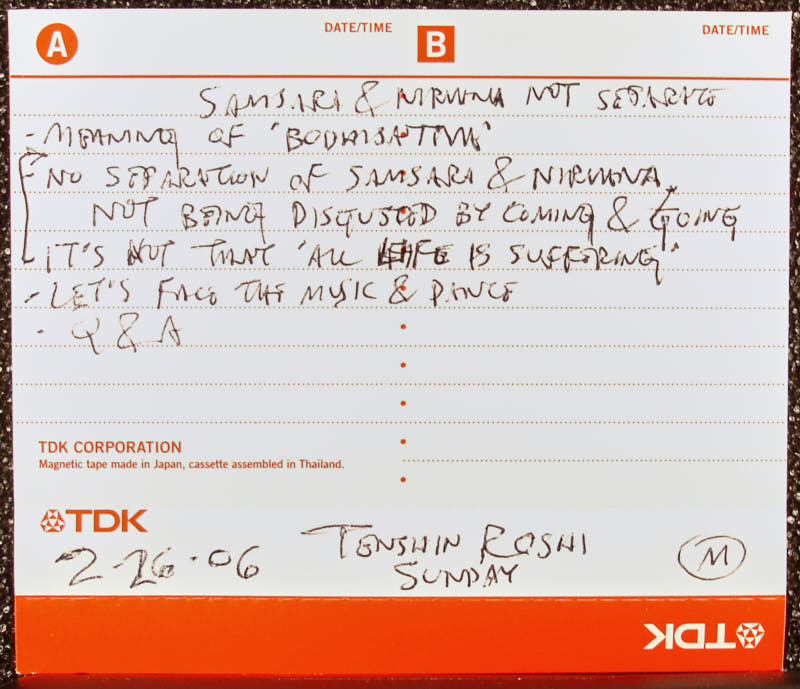 A DATE/TIME B DATE/TIME
SAMSARA & NIRVANA NOT SEPARATE
- MEANING OF 'BODHISATTVA'
- NO SEPARATION OF SAMSARA & NIRVANA,
NOT BEING DISGUSTED BY COMING & GOING
- IT'S NOT THAT 'ALL LIFE IS SUFFERING'
- LET'S FACE THE MUSIC & DANCE
- Q & A
TDK CORPORATION
Magnetic tape made in Japan, cassette assembled in Thailand.
TDK
2-26-06 TENSHIN ROSHI M
SUNDAY
TDK